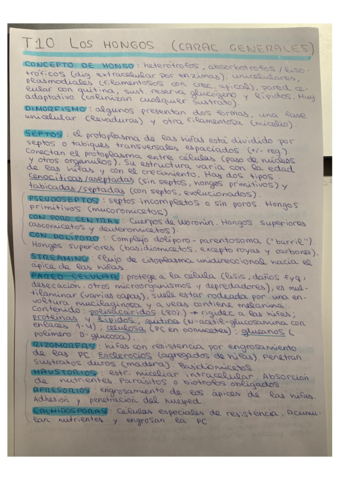 T10 LOS HONGOS (CARAC. GENERALES)
CONCEPTO DE HONGO: heterótrofos, absorbotrofos / liso-
tróficos (dig. extracelular por enzimas), unicelulares,
plasmodiales (filamentosos con crec. apical), pared ce-
lular con quitina, sust. reserva glucógeno y lípidos. Muy
adaptativo (colonizan cualquier sustrato)
DIMORFISMO: algunos presentan dos formas, una fase
unicelular (levaduras) y otra filamentosa (micelio)
SEPTOS: el protoplasma de las hifas está dividido por
septos o tabiques transversales espaciados (ni. reg.)
Conectan el protoplasma entre células (paso de núcleos
y otros orgánulos). Su estructura varía con la edad
de las hifas y con el crecimiento. Hay dos tipos
cenocíticas/aseptadas (sin septos, hongos primitivos) y
tabicadas/septadas (con septos, evolucionados)
PSEUDOSEPTOS: septos incompletos o sin poros. Hongos
primitivos (mucoromicetos)
CON PORO CENTRAL: Cuerpos de Woronin. Hongos superiores
(ascomicetos y deuteromicetos)
CON DOLIPORO: Complejo dolíporo-parentosoma. ("barril")
Hongos superiores (basidiomicetos, excepto royas y carbones).
STREAMING: flujo de citoplasma unidireccional hacia el
ápice de las hifas
PARED CELULAR: protege a la célula (lisis, daños fyq,
desecación, otros microorganismos y depredadores), es mul-
tilaminar (varias capas), suele estar rodeada por una en-
voltura mucilaginosa y a veces contiene melanina.
Contenido: polisacáridos (80%) → rigidez a las hifas,
proteínas y lípidos, quitina (N-acetil-glucosamina con
enlaces 1-4), celulosa (PC en oomicetes), glucanos (
polímero β-glucosa).
RIZOMORFAS: hifas con resistencia por engrosamiento
de las PC. Esclerocios (agregados de hifas). Penetran
sustratos duros (madera). Basidiomicetos
HAUSTORIOS: estr. miceliar intracelular. Absorción
de nutrientes. Parásitos o biótrofos obligados
APRESORIOS: engrosamiento de los ápices de las hifas.
Adhesión y penetración del huésped
CLAMIDOSPORAS: Células especiales de resistencia. Acumu-
lan nutrientes y engrosan la PC